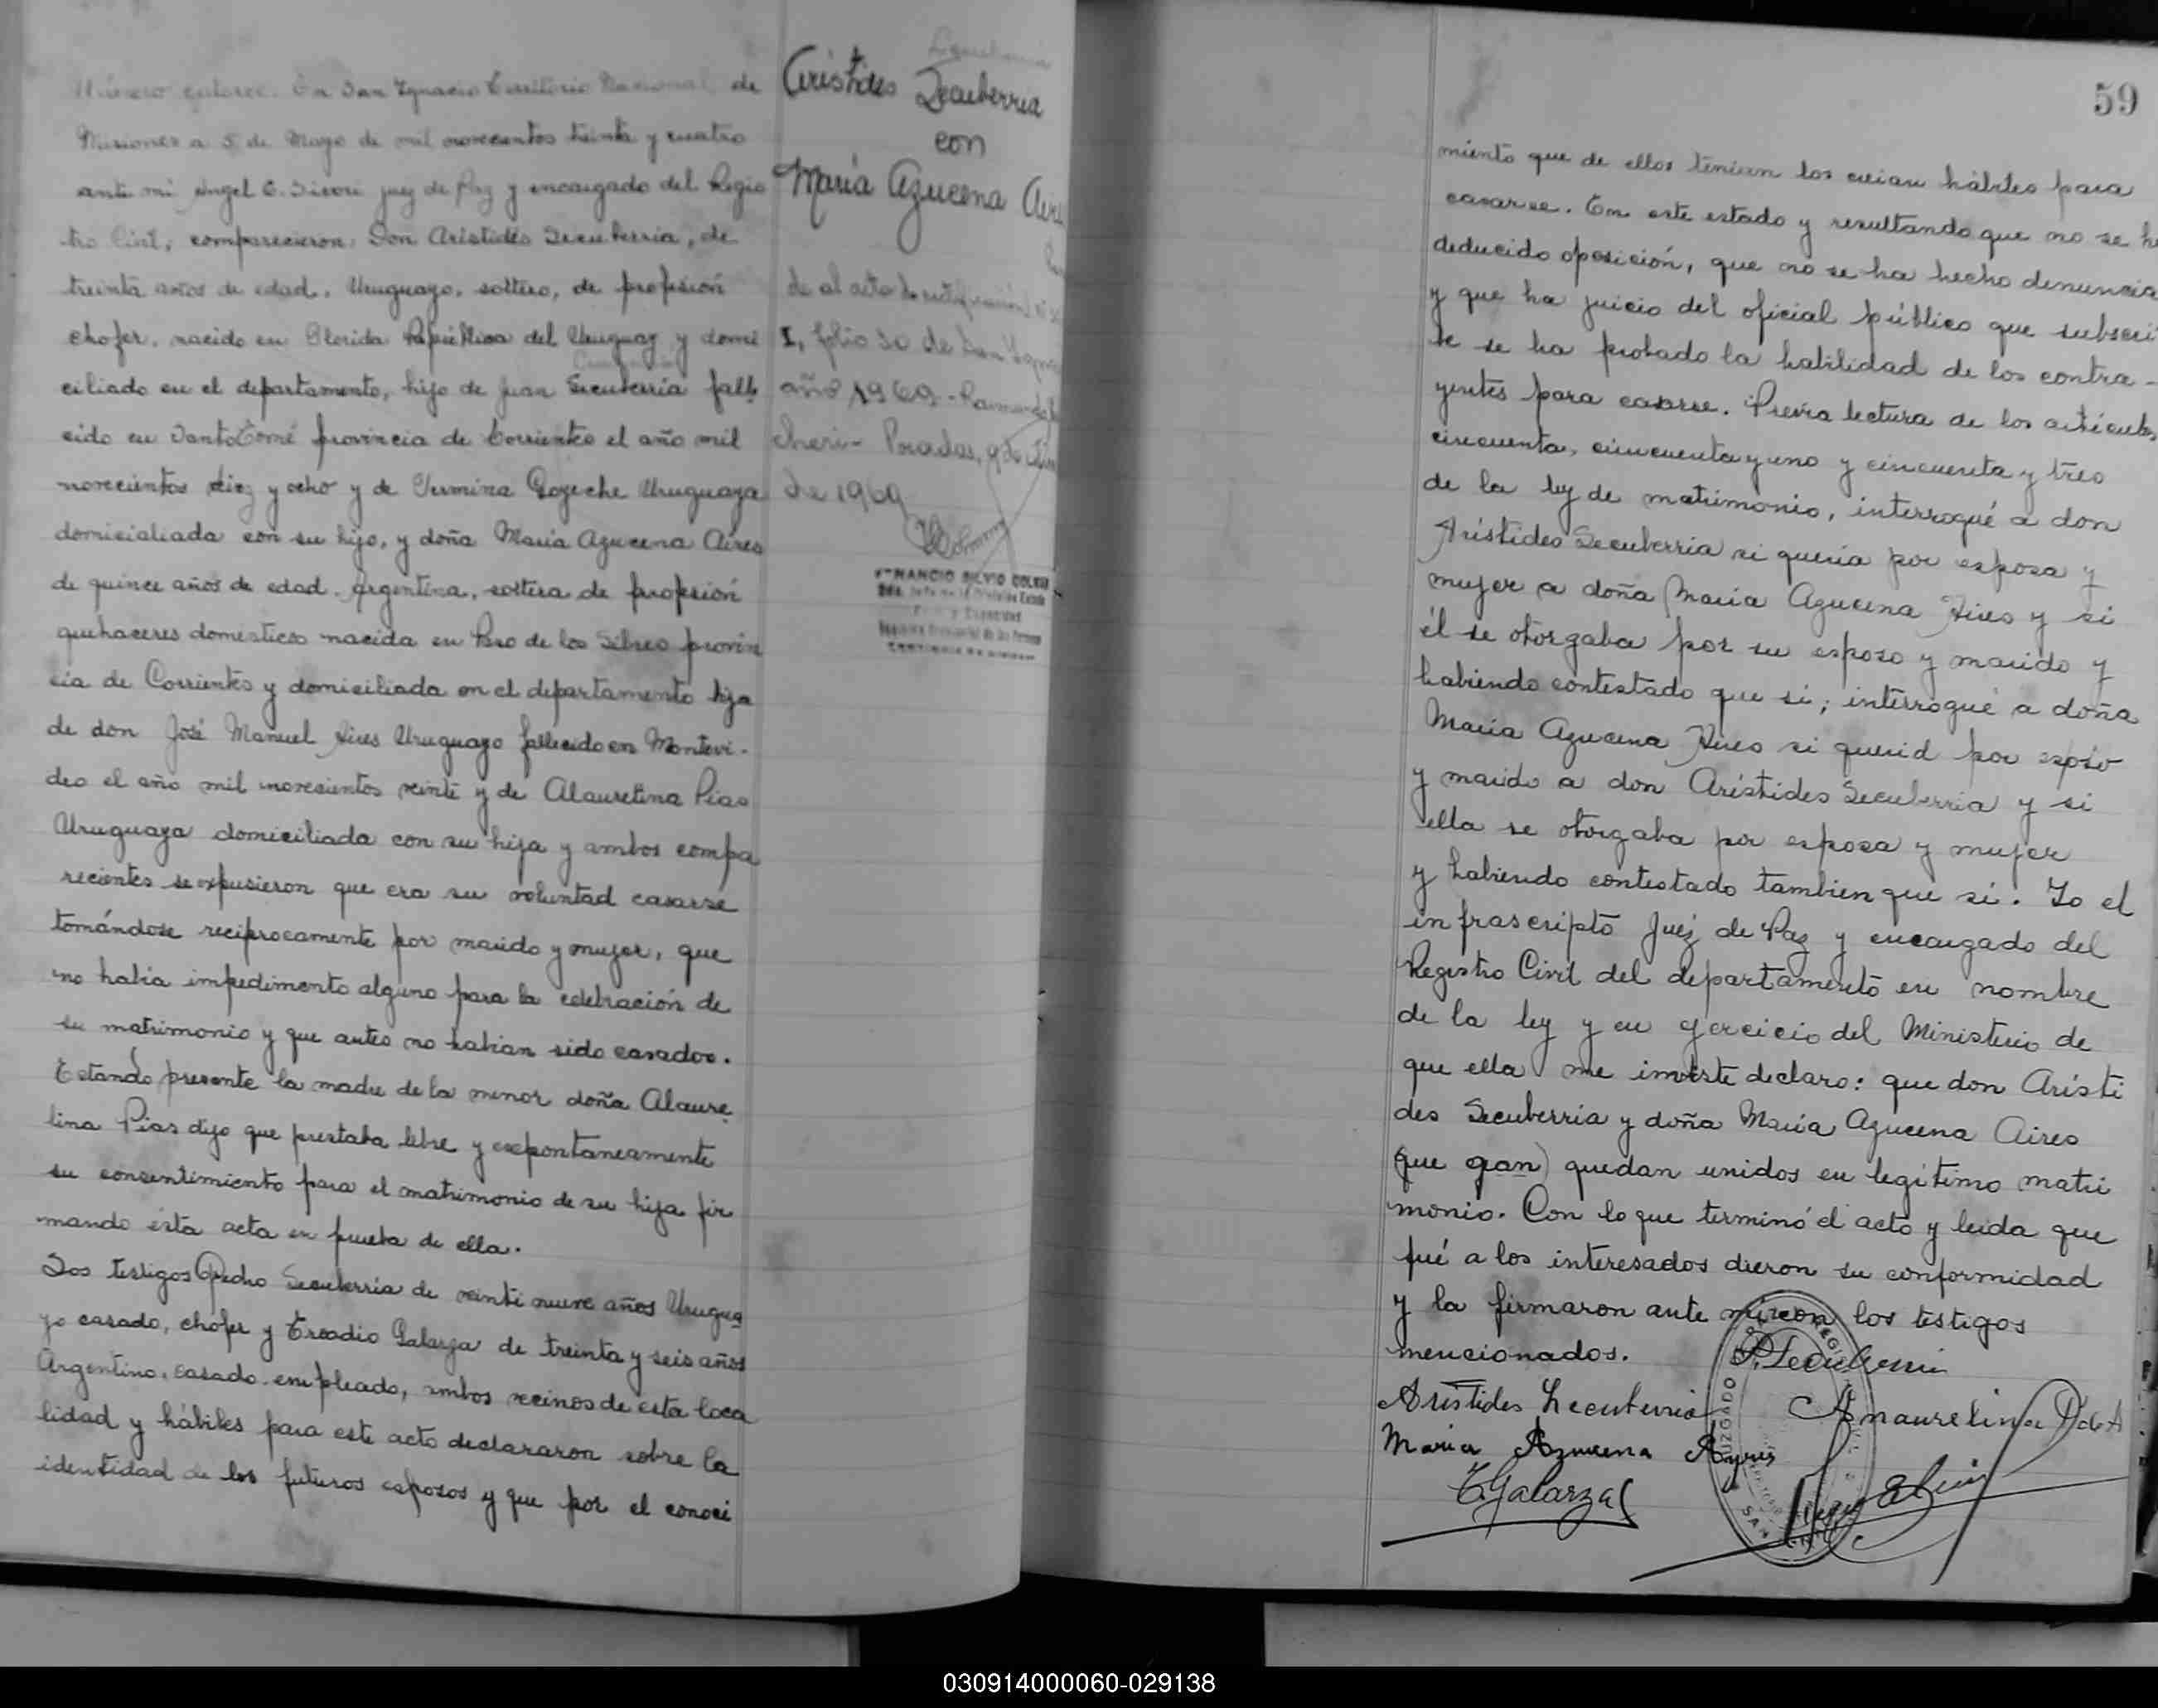 Número catorce. En San Ignacio Territorio Nacional de
Misiones a 5 de Mayo de mil novecientos treinta y cuatro
ante mi Angel C. juez de Paz y encargado del Regis
tro Civil, comparecieron: Don Arístides Secuberria, de
treinta años de edad, Uruguayo, soltero, de profesión
chofer, nacido en Florida República del Uruguay y domi
ciliado en el departamento, hijo de Juan Secuberria falle
cido en Santo Tomé provincia de Corrientes el año mil
novecientos diez y ocho y de Uruguaya
domicialiada con su hijo, y doña María Azucena Aires
de quince años de edad, Argentina, soltera de profesión
quehaceres domesticos nacida en Paso de los Libres provin
cia de Corrientes y domiciliada en el departamento hija
de don José Manuel Aires Uruguayo fallecido en Montevi-
deo el año mil novecientos veinte y de Alauretina Pias
Uruguaya domiciliada con su hija y ambos compa
recientes se expusieron que era su voluntad casarse
tomándose reciprocamente por marido y mujer, que
no habia impedimento alguno para la celebración de
su matrimonio y que antes no habian sido casados.
Estando presente la madre de la menor doña Alaure
lina Pias dijo que prestaba libre y expontaneamente
su consentimiento para el matrimonio de su hija fir
mando ésta acta en prueba de ella.
Los testigos Pedro Secuberria de veinti nueve años Urugua
yo casado, chofer y Galarza de treinta y seis años
Argentino, casado empleado, ambos vecinos de esta loca
lidad y hábiles para este acto declararon sobre la
identidad de los futuros esposos y que por el conoci
Arístides Secuberria
con
María Azucena Aires
de al acta de rectificación
I, folio 30 de San Ignacio
año 1969.-
Posadas, 9 de
de 1969
VENANCIO SILVIO
59
miento que de ellos tenian los creian hábiles para
casarse. En este estado y resultando que no se ha
deducido oposición, que no se ha hecho denuncia
y que ha juicio del oficial público que subscri
be se ha probado la habilidad de los contra-
yentes para casarse. Previa lectura de los artículos
cincuenta, cincuenta y uno y cincuenta y tres
de la ley de matrimonio, interrogué a don
Arístides Secuberria si queria por esposa y
mujer a doña María Azucena Aires y si
él se otorgaba por su esposo y marido y
habiendo contestado que si; interrogué a doña
María Azucena Aires si querid por esposo
y marido a don Arístides Secuberria y si
ella se otorgaba por esposa y mujer
y habiendo contestado tambien que sí. Yo el
infrascripto Juez de Paz y encargado del
Registro Civil del departamento en nombre
de la ley y en ejercicio del Ministerio de
que ella me inviste declaro: que don Arísti
des Secuberria y doña María Azucena Aires
(que gan) quedan unidos en legítimo matri
monio. Con lo que terminó el acto y leida que
fué a los interesados dieron su conformidad
y la firmaron ante mi con los testigos
mencionados.
P. Lecuberri
Arístides Lecuberria
Amaurelina P de A
Maria Azucena Ayres
E. Galarza
JUZGADO DE
REGISTRO CIVIL
SAN
030914000060-029138